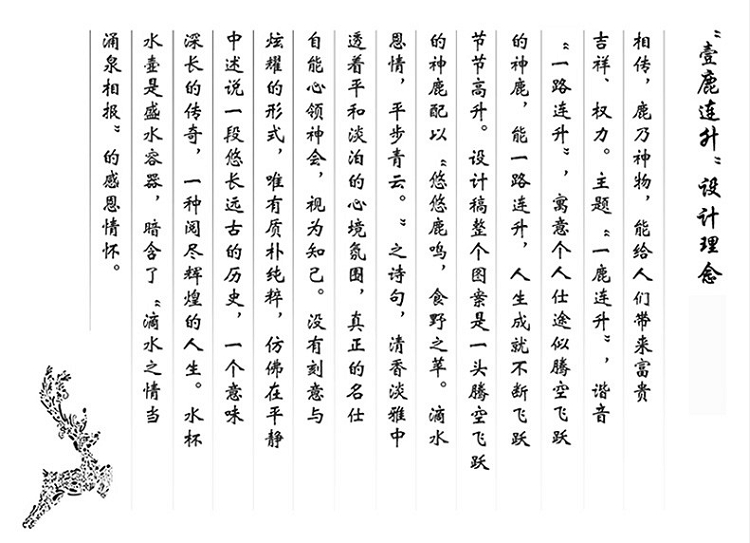 “壹鹿连升”设计理念
相传，鹿乃神物，能给人们带来富贵
吉祥、权力。主题“一鹿连升”，谐音
“一路连升”，寓意个人仕途似腾空飞跃
的神鹿，能一路连升，人生成就不断飞跃
节节高升。设计稿整个图案是一头腾空飞跃
的神鹿配以“悠悠鹿鸣，食野之苹。滴水
恩情，平步青云。”之诗句，清香淡雅中
透着平和淡泊的心境氛围，真正的名仕
自能心领神会，视为知己。没有刻意与
炫耀的形式，唯有质朴纯粹，仿佛在平静
中述说一段悠长远古的历史，一个意味
深长的传奇，一种阅尽辉煌的人生。水杯
水壹是盛水容器，暗含了“滴水之情当
涌泉相报”的感恩情怀。